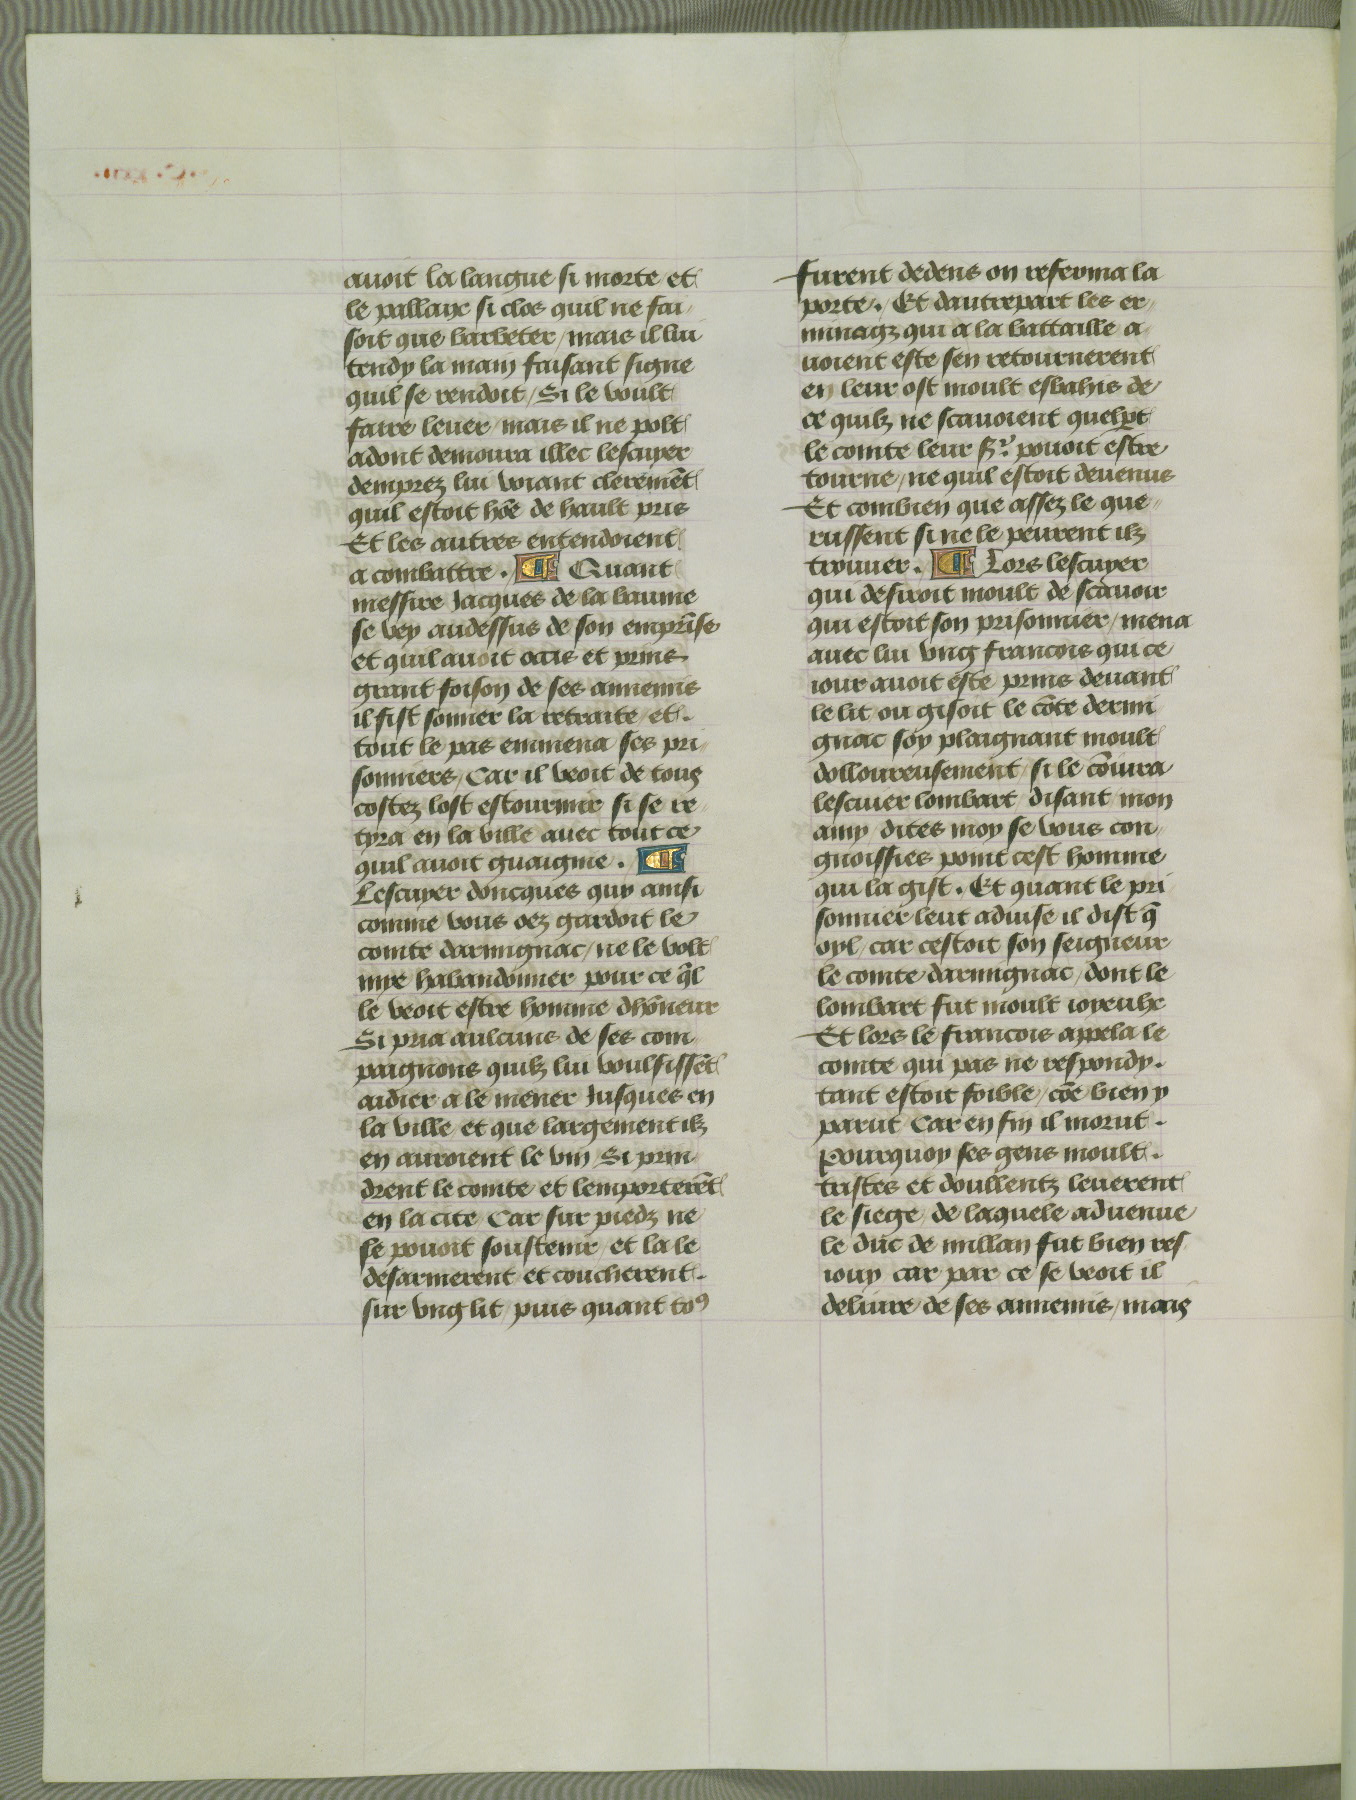 auoit la langue si morte et
le pallaix si clos quil ne fai
soit que barbeter / mais il lui
tendy la main faisant signe
quil se rendoit / Si le voult
faire leuer / mais il ne polt
adont demoura illec lescuyer
demprez lui voiant cleremēt
quil estoit hōe de hault pris
Et les autres entendoient
a combattre . ¶ Quant
messire Jacques de la baume
se vey audessus de son emprise
et quil auoit occis et prins
grant foison de ses annemis
il fist sonner la retraite / et .
tout le pas emmena ses pri
sonniers / Car il veoit de tous
costez lost estourmir si se re
tyra en la ville auec tout ce
quil auoit guaignie . ¶
Lescuyer doncques quy ainsi
comme vous oez gardoit le
comte darmignac / ne le volt
mye habandonner pour ce q̄l
le veoit estre homme dhōneur
Si pria aulcuns de ses com
paignons quilz lui voulsissēt
aidier a le mener Jusques en
la ville / et que largement ilz
en auroient le vin Si prin
drent le comte et lemporterēt
en la cite Car sur piedz ne
se pouoit soustenir / et la le
desarmerent et coucherent .
sur vng lit / puis quant toꝰ
furent dedens on referma la
porte . Et dautrepart les er
minagz qui a la battaille a
uoient este sen retournerent
en leur ost moult esbahis de
ce quilz ne scauoient quelpt
le comte leur sr̄ pouoit estre
tourne / ne quil estoit deuenus
Et combien que assez le que
russent si ne le peurent ilz
trouuer . ¶ Lors lescuyer
qui desiroit moult de scauoir
qui estoit son prisonnier / mena
auec lui vng francois qui ce
iour auoit este prins deuant
le lit ou gisoit le cōte dermi
gnac soy plaignant moult
dolloureusement / si le cōiura
lescuier lombart disant mon
amy dites moy se vous con
gnoissies point cest homme
qui la gist . Et quant le pri
sonnier leut aduise il dist q̄
oyl / car cestoit son seigneur
le comte darmignac / dont le
lombart fut moult ioyeulx
Et lors le francois appela le
comte qui pas ne respondy .
tant estoit foible / cōe bien y
parut Car en fin il morut .
Pourquoy ses gens moult .
tristes et doullentz leuerent
le siege / de laquele aduenue
le duc de millan fut bien res
iouy car par ce se veoit il
deliure de ses annemis / mais